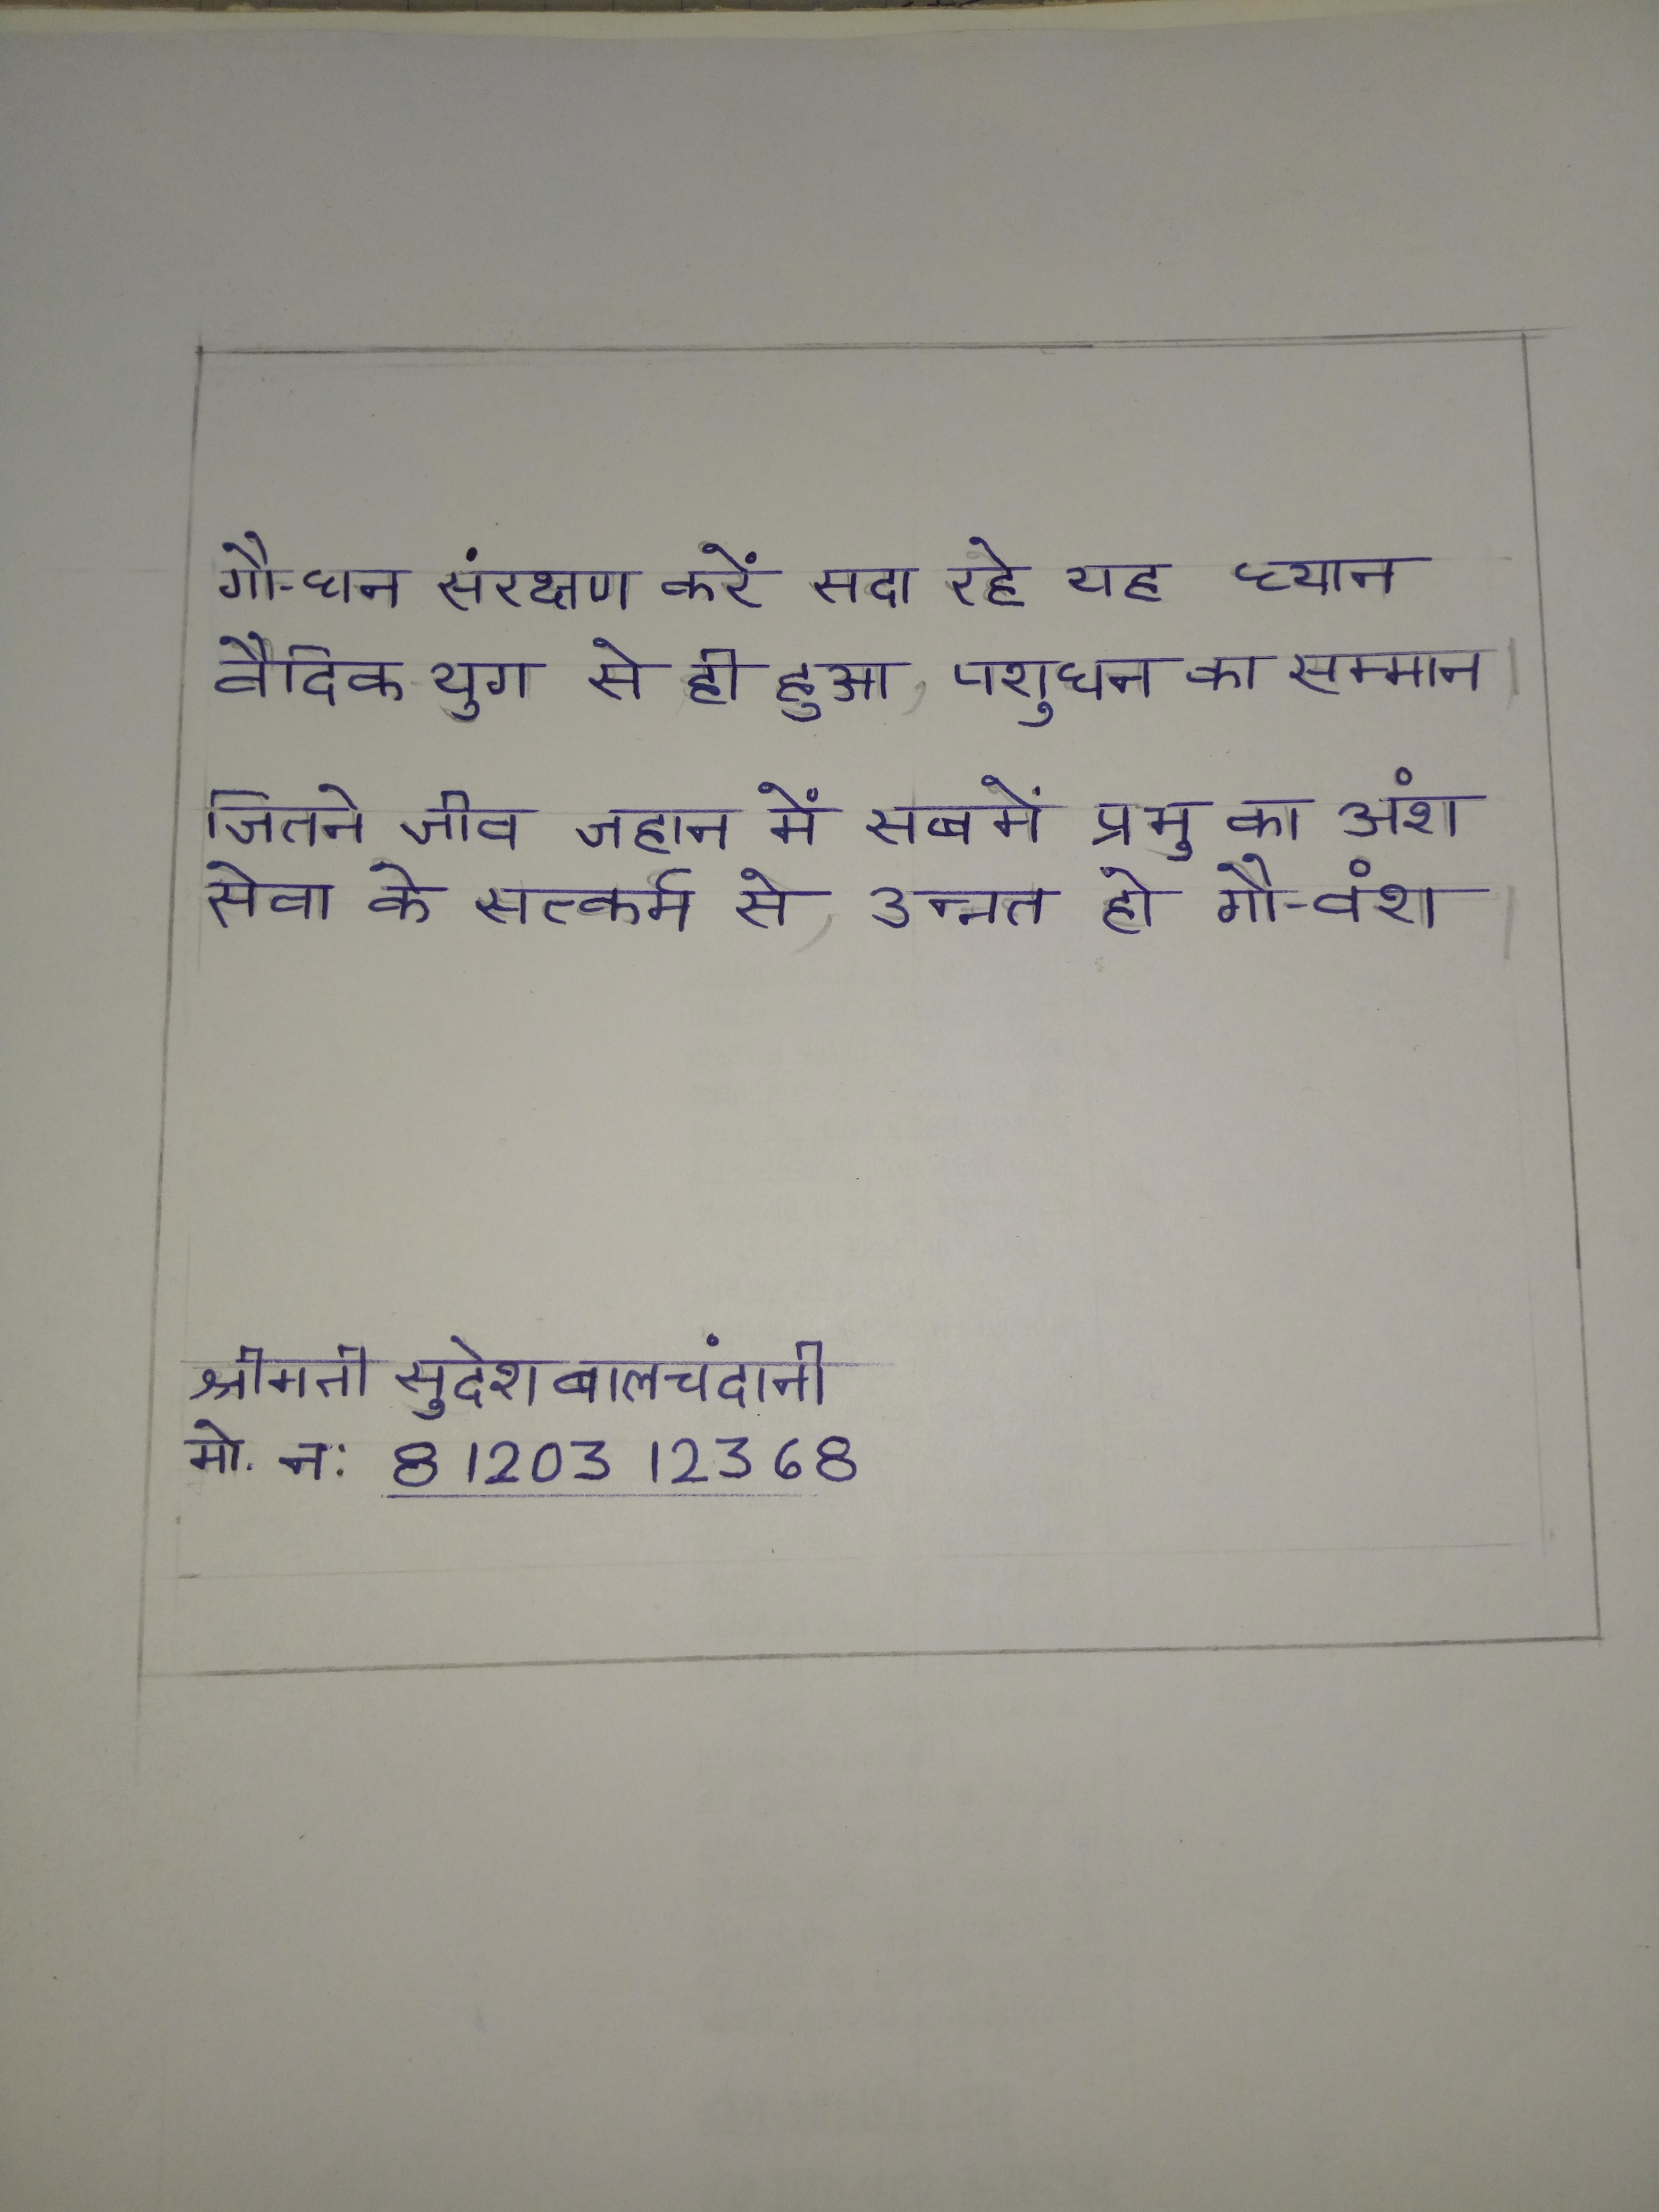 गौ-धन संरक्षण करें सदा रहे यह ध्यान
वैदिक युग से ही हुआ, पशुधन का सम्मान
जितने जीव जहान में सबमें प्रभु का अंश
सेवा के सत्कर्म से, उन्नत हो गौ-वंश
श्रीमती सुदेश बालचंदानी
मो. न: 81203 12368